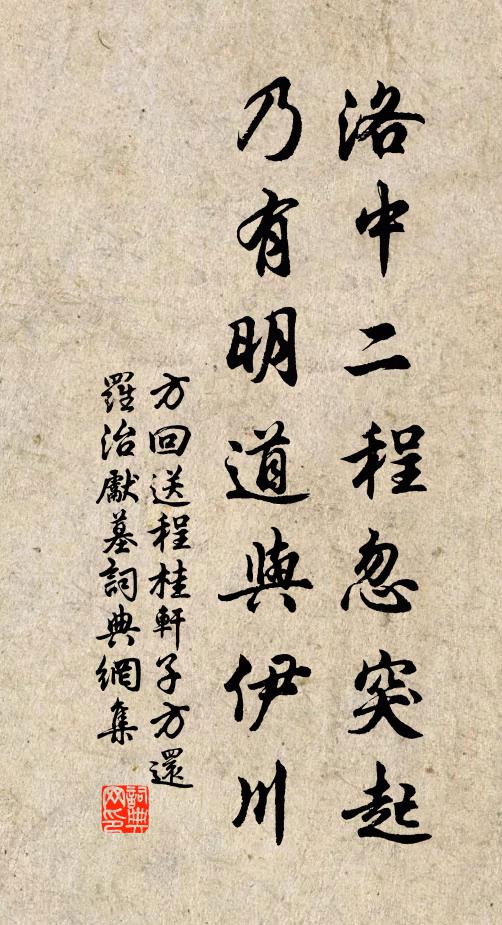 洛中二程忽突起
乃有明道與伊川
方回送程桂軒子方還
羅治獻墓詞典網集
詞典网印